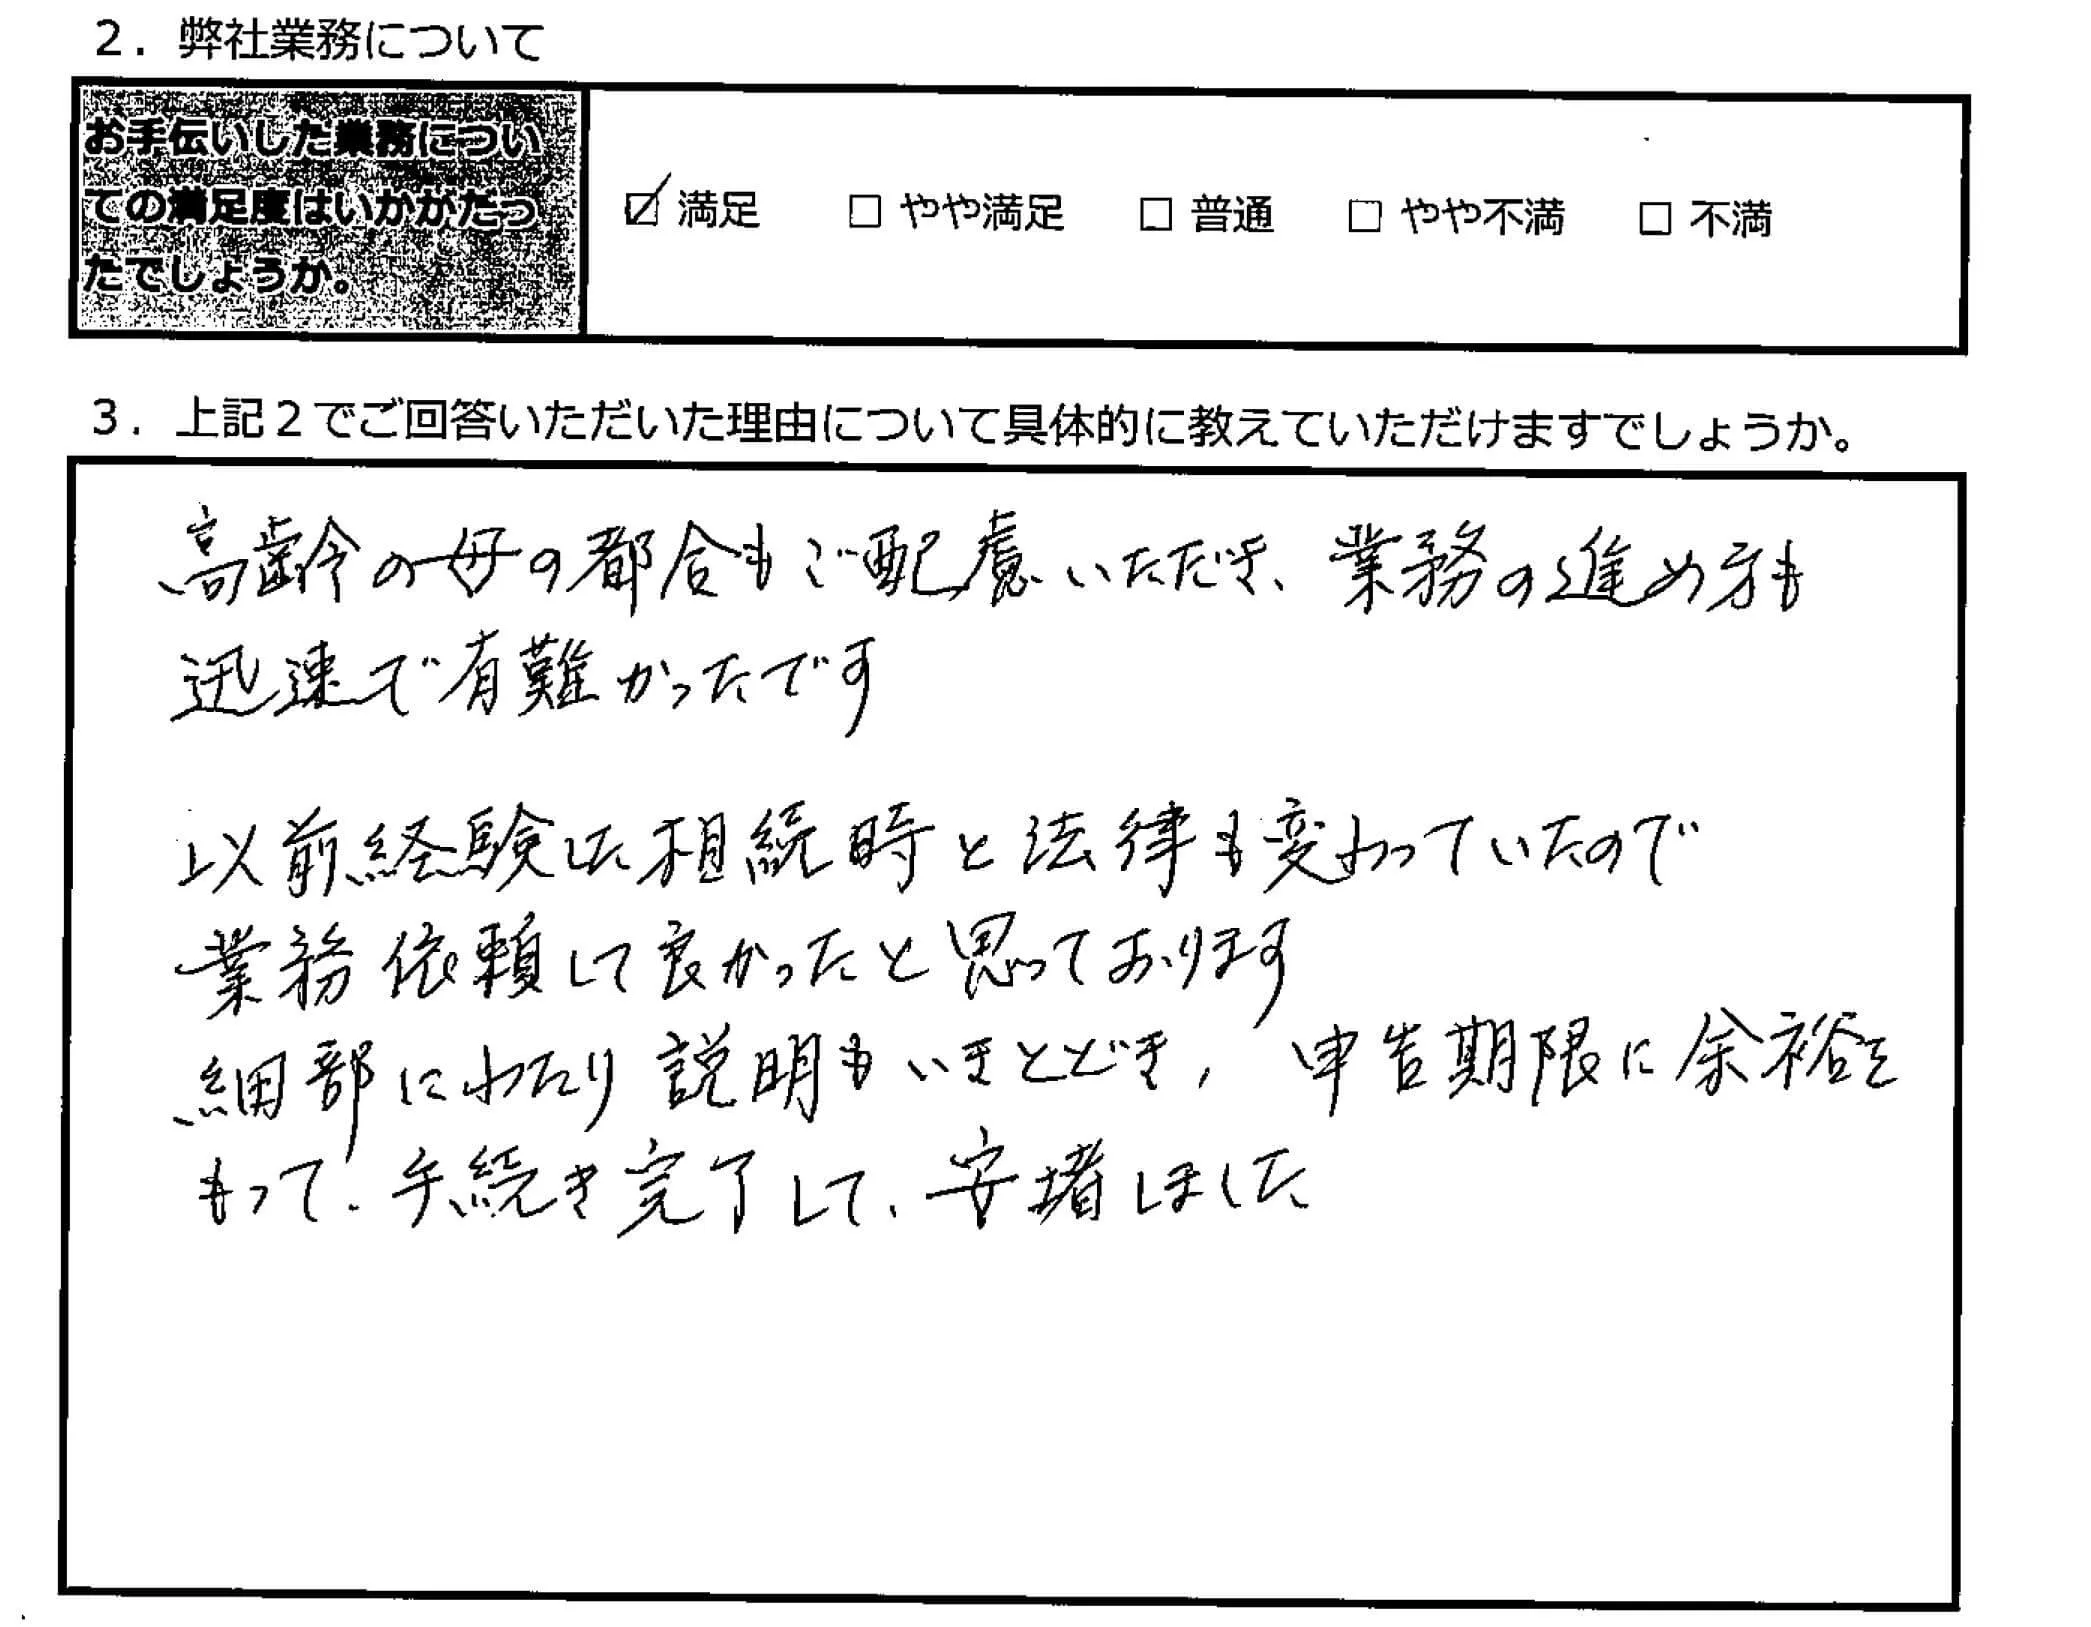 2．弊社業務について
お手伝いした業務につい
ての満足度はいかがだっ
たでしょうか。
☑ 満足 □ やや満足 □ 普通 □ やや不満 □ 不満
3．上記2でご回答いただいた理由について具体的に教えていただけますでしょうか。
高齢の母の都合もご配慮いただき、業務の進め方も
迅速で有難かったです
以前経験した相続時と法律も変わっていたので
業務依頼して良かったと思っております
細部にわたり説明もいきとどき，申告期限に余裕を
もって、手続き完了して、安堵しました